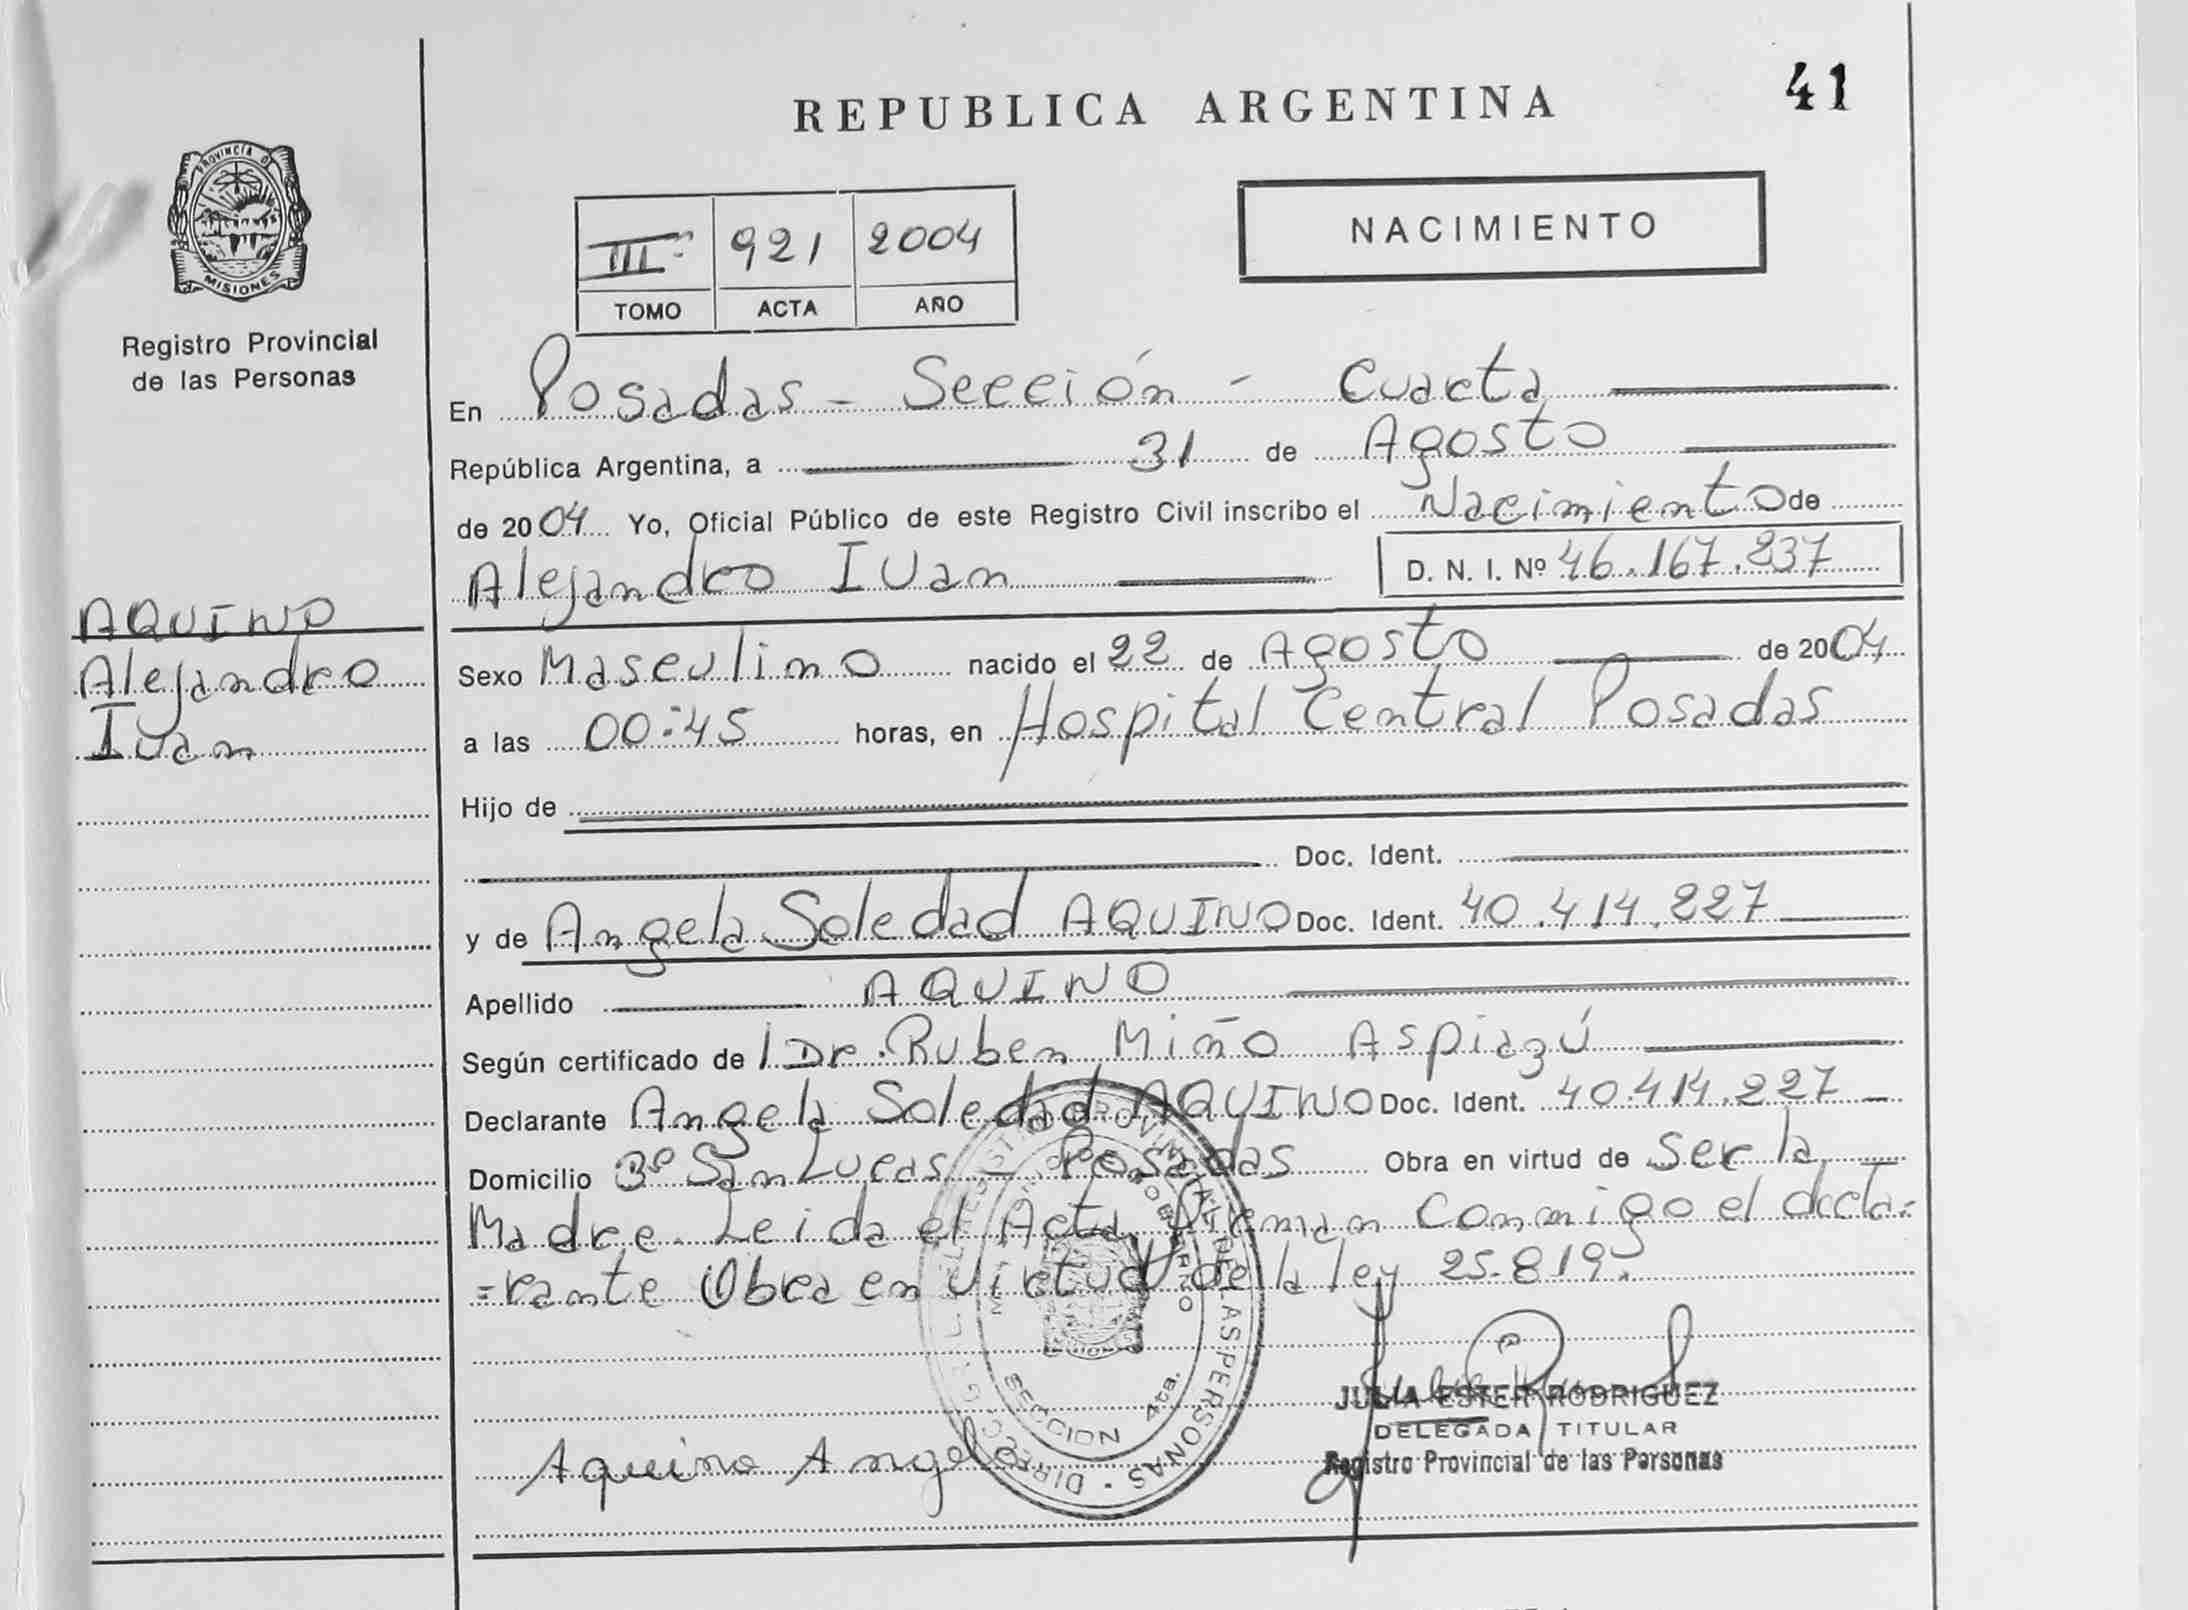 41
REPUBLICA ARGENTINA
PROVINCIA DE
MISIONES
Registro Provincial
de las Personas
NACIMIENTO
III 921 2004
TOMO ACTA AÑO
En Posadas - Sección - Cuarta
República Argentina, a 31 de Agosto
de 2004 Yo, Oficial Público de este Registro Civil inscribo el Nacimiento de
Alejandro Ivan D. N. I. Nº 46.167.237
AQUINO
Alejandro
Ivan
Sexo Masculino nacido el 22 de Agosto de 2004
a las 00:45 horas, en Hospital Central Posadas
Hijo de
Doc. Ident.
y de Angela Soledad AQUINO Doc. Ident. 40.414.227
Apellido AQUINO
Según certificado de l Dr. Ruben Miño Aspiazú
Declarante Angela Soledad AQUINO Doc. Ident. 40.414.227
Domicilio Bº San Lucas - Posadas Obra en virtud de ser la
Madre. Leida el Acta, Firman Conmigo el decla=
=rante Obra en Virtud de la ley 25.819.
SECCION 4ta.
JULIA ESTER RODRIGUEZ
DELEGADA TITULAR
Registro Provincial de las Personas
Aquino Angela